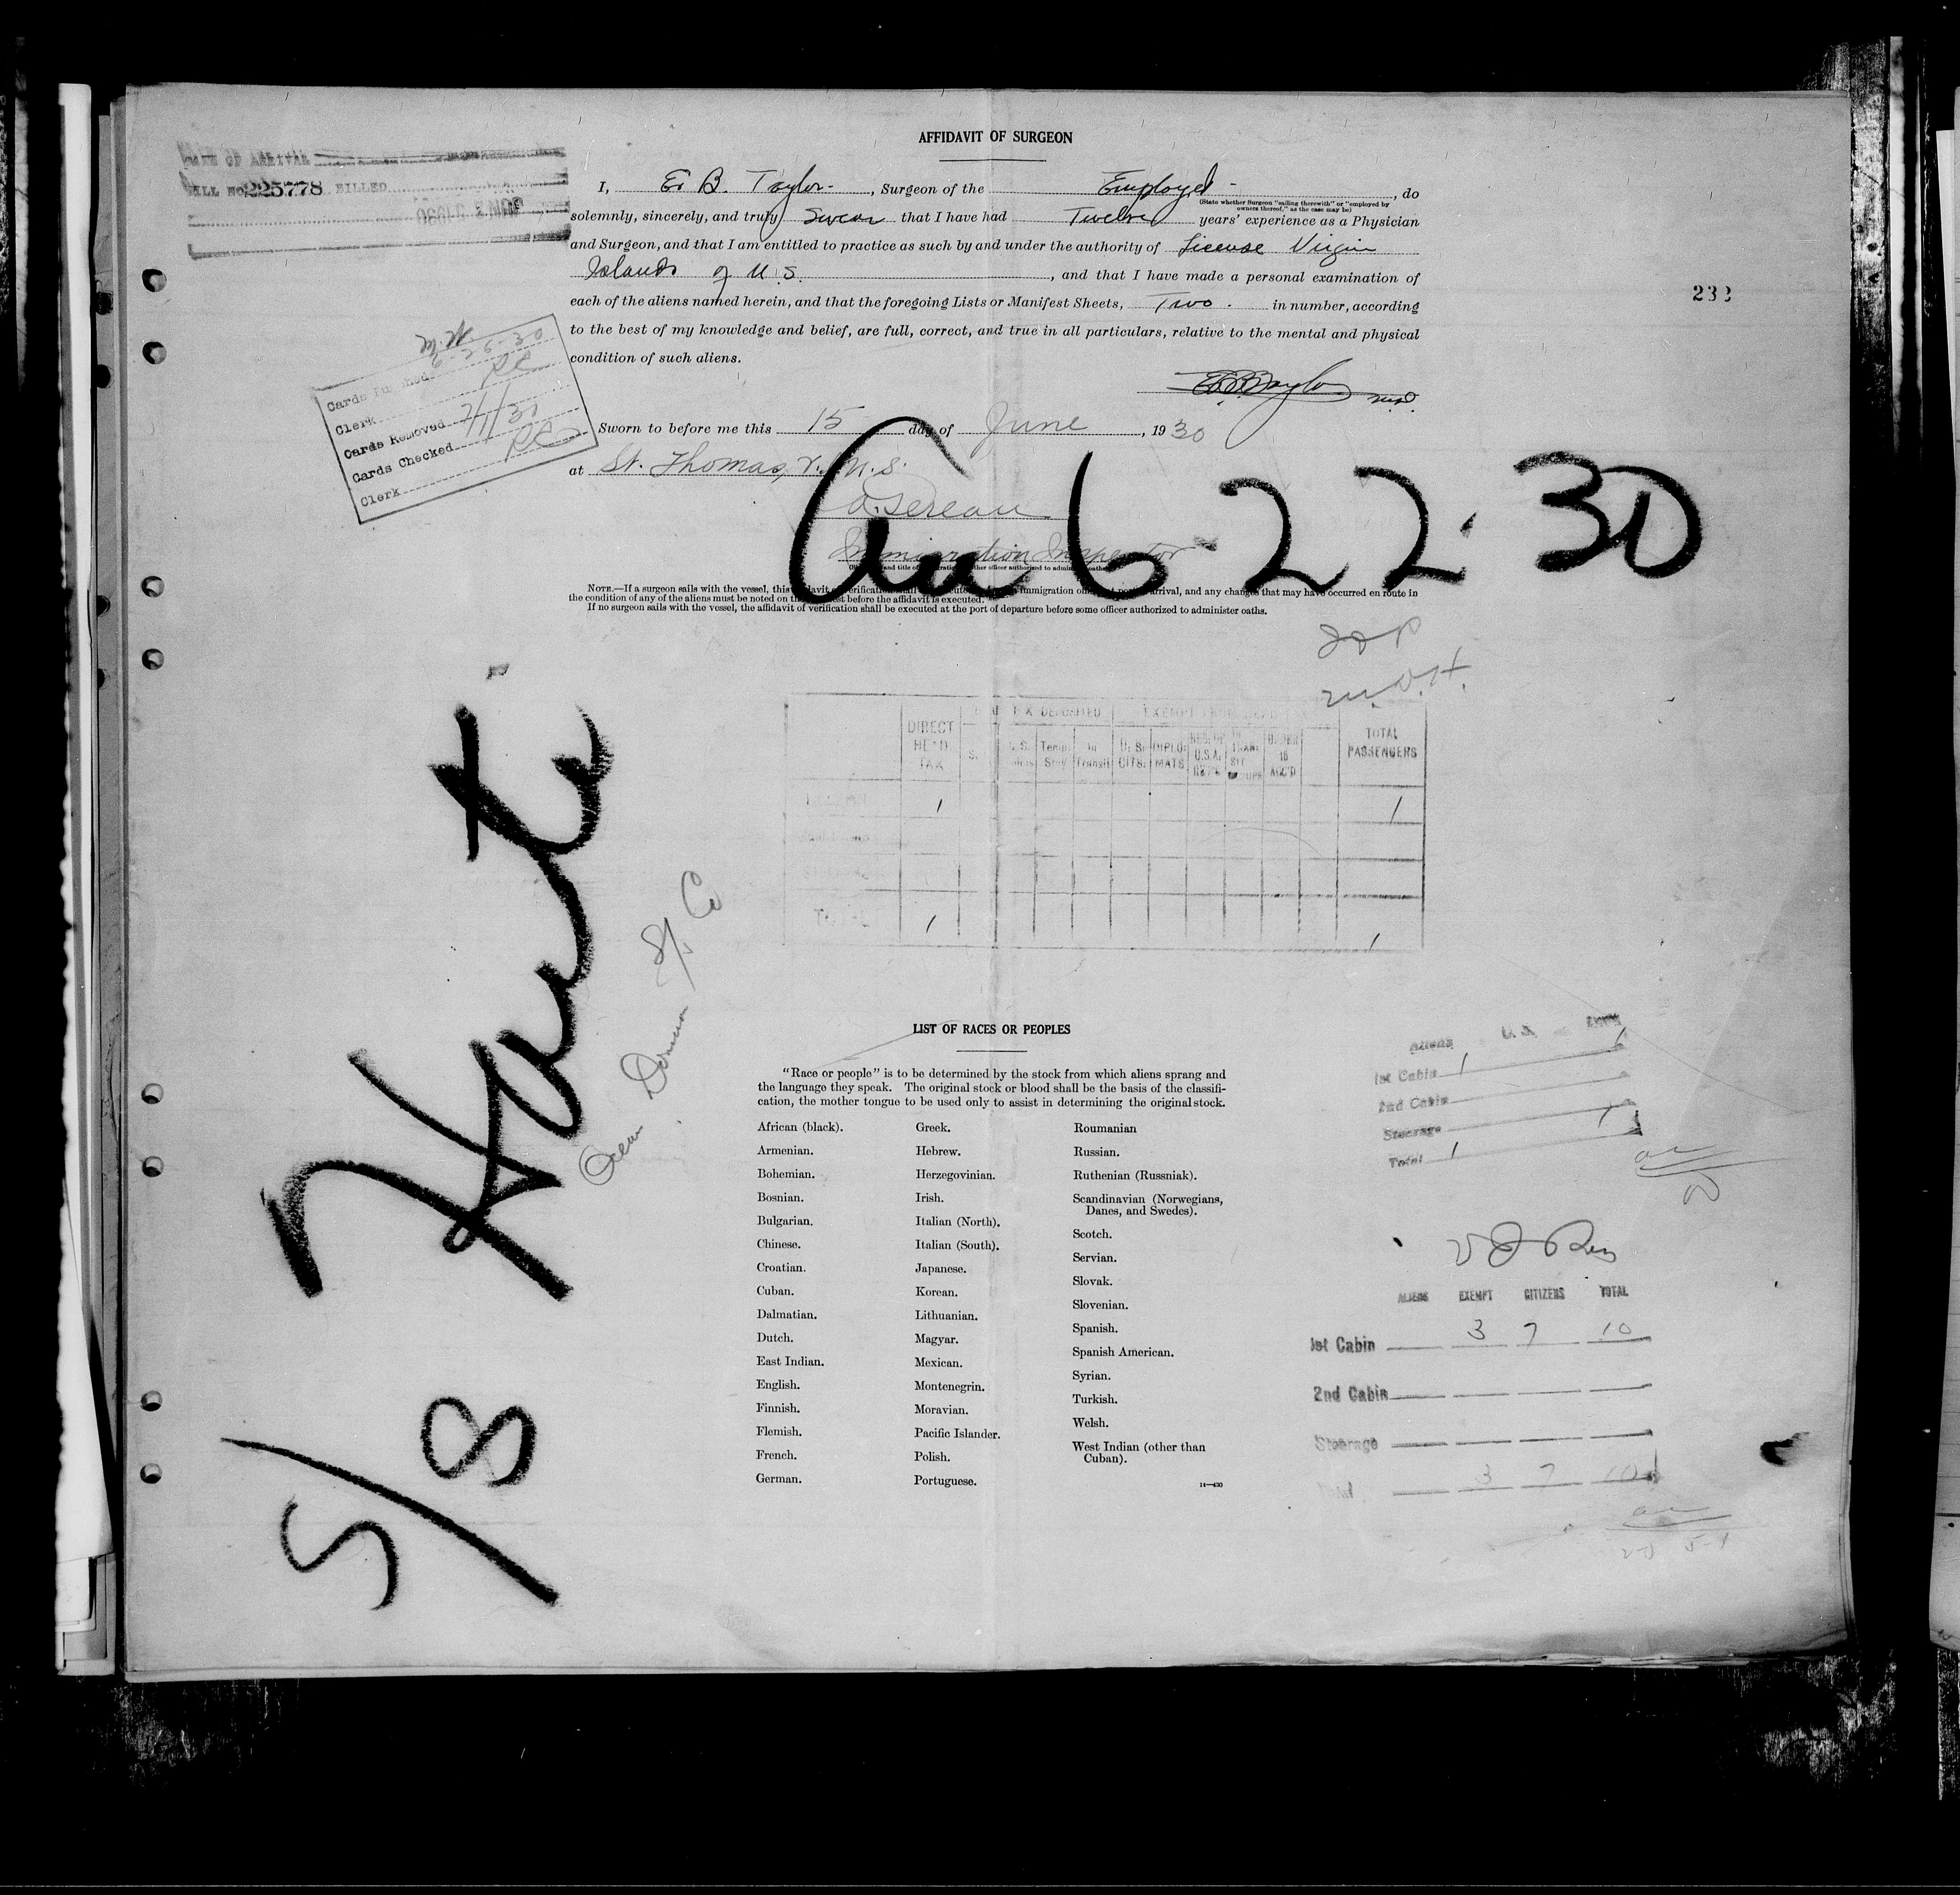 AFFIDAVIT OF SURGEON
DATE OF ARRIVAL
BILL NO. 225778 BILLED
I, E. B. Taylor, Surgeon of the Employed, do
(State whether Surgeon "sailing therewith" or "employed by owners thereof," as the case may be)
solemnly, sincerely, and truly Swear that I have had Twelve years' experience as a Physician
and Surgeon, and that I am entitled to practice as such by and under the authority of License Virgin
Islands of U.S., and that I have made a personal examination of
each of the aliens named herein, and that the foregoing Lists or Manifest Sheets, Two. in number, according
to the best of my knowledge and belief, are full, correct, and true in all particulars, relative to the mental and physical
condition of such aliens.
232
E.B. Taylor M.D.
6-26-30
Cards Punched
Clerk
Cards Removed 7/1/30
Cards Checked
Clerk
Sworn to before me this 15 day of June, 1930
at St. Thomas, V.
Immigration Inspector
6-22-30
NOTE.—If a surgeon sails with the vessel, this immigration arrival, and any changes that may have occurred en route in
the condition of any of the aliens must be noted on before the affidavit is executed.
If no surgeon sails with the vessel, the affidavit of verification shall be executed at the port of departure before some officer authorized to administer oaths.
DIRECT HEAD TAX
TAX DEPOSITED
U.S.
Temp. Stay
In Transit
U.S. CITS.
DIPLO-MATS
UNDER 16 ACC'D
TOTAL PASSENGERS
1 1
1 1
S/S
LIST OF RACES OR PEOPLES
"Race or people" is to be determined by the stock from which aliens sprang and
the language they speak. The original stock or blood shall be the basis of the classifi-
cation, the mother tongue to be used only to assist in determining the original stock.
African (black).
Armenian.
Bohemian.
Bosnian.
Bulgarian.
Chinese.
Croatian.
Cuban.
Dalmatian.
Dutch.
East Indian.
English.
Finnish.
Flemish.
French.
German.
Greek.
Hebrew.
Herzegovinian.
Irish.
Italian (North).
Italian (South).
Japanese.
Korean.
Lithuanian.
Magyar.
Mexican.
Montenegrin.
Moravian.
Pacific Islander.
Polish.
Portuguese.
Roumanian
Russian.
Ruthenian (Russniak).
Scandinavian (Norwegians,
Danes, and Swedes).
Scotch.
Servian.
Slovak.
Slovenian.
Spanish.
Spanish American.
Syrian.
Turkish.
Welsh.
West Indian (other than
Cuban).
14—430
Aliens U.S.
1st Cabin 1 1
2nd Cabin
Steerage
Total 1 1
ALIENS EXEMPT CITIZENS TOTAL
1st Cabin 3 7 10
2nd Cabin
Steerage
Total 3 7 10